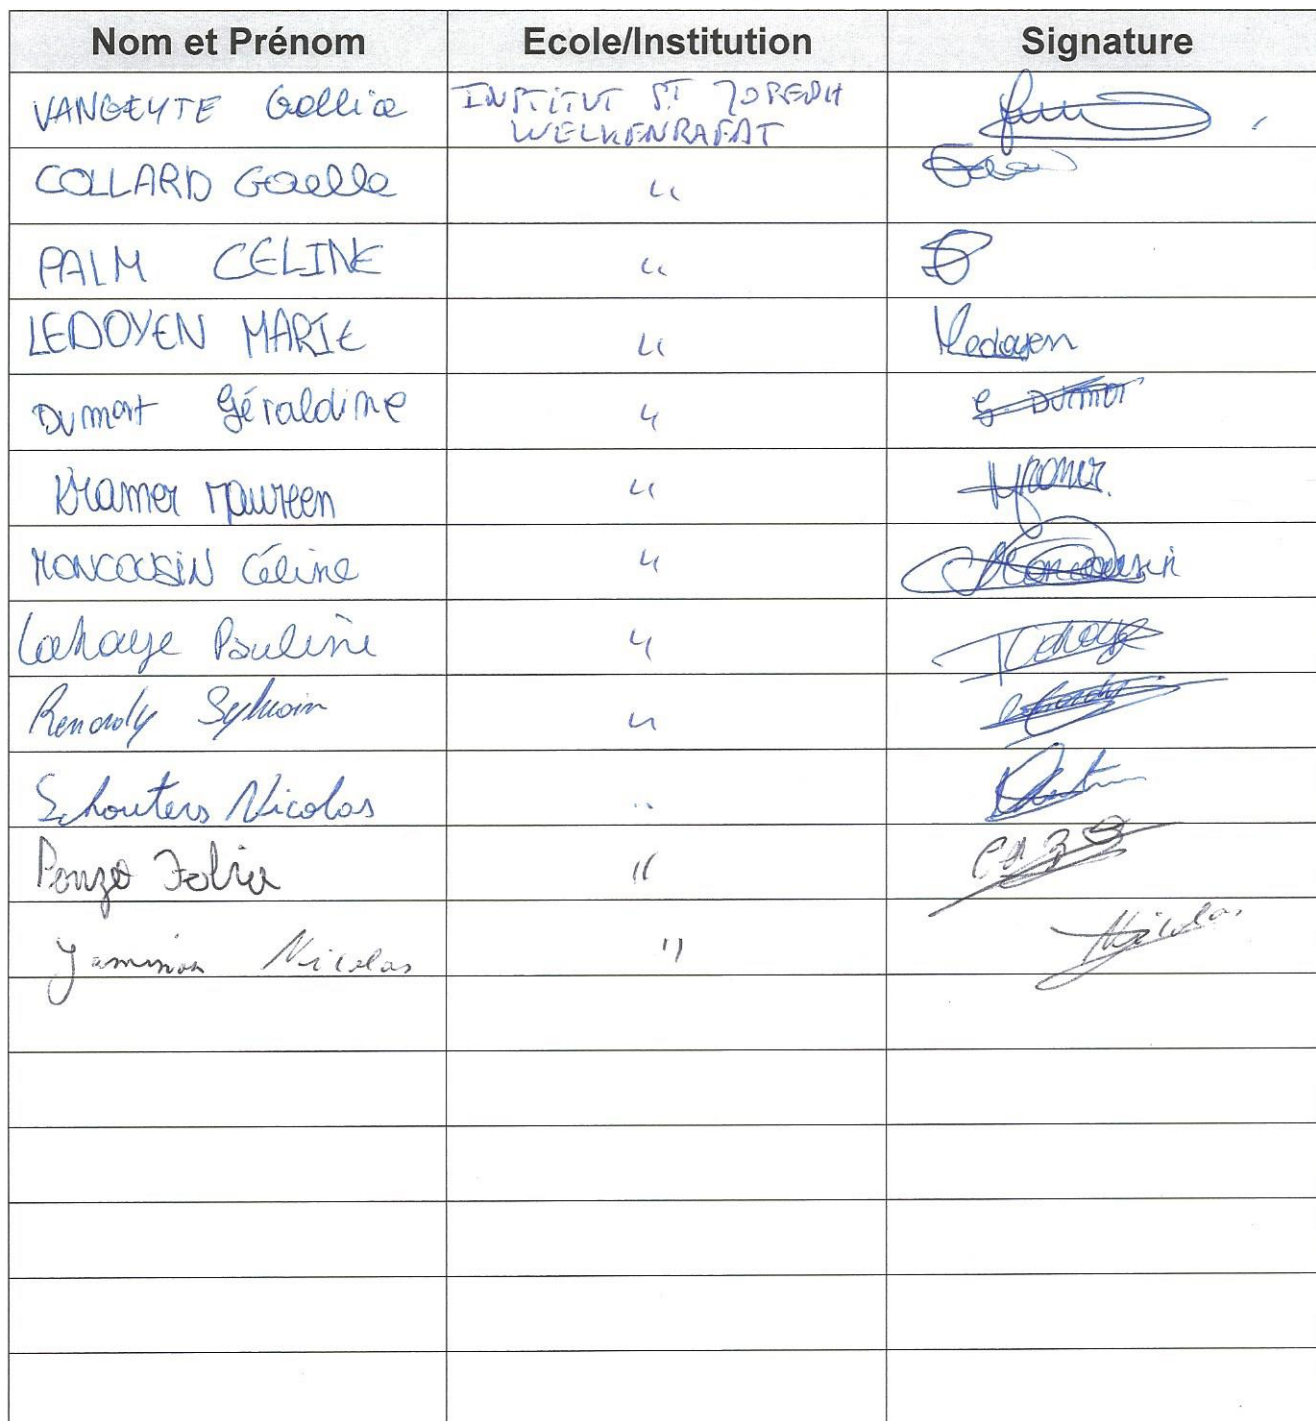 Nom et Prénom Ecole/Institution Signature
VANGEYTE Gallice INSTITUT ST JOSEPH
WELKENRAEDT
COLLARD Gaelle "
PALM CELINE "
LEDOYEN MARIE " Ledoyen
Dumont Géraldine " G. Dumont
Kramer Maureen " Kramer
MONCOUSIN Céline " Moncousin
Lahaye Pauline " Lahaye
Renardy Sylvain "
Schouters Nicolas "
Ponzo "
Jaminon Nicolas " Nicolas